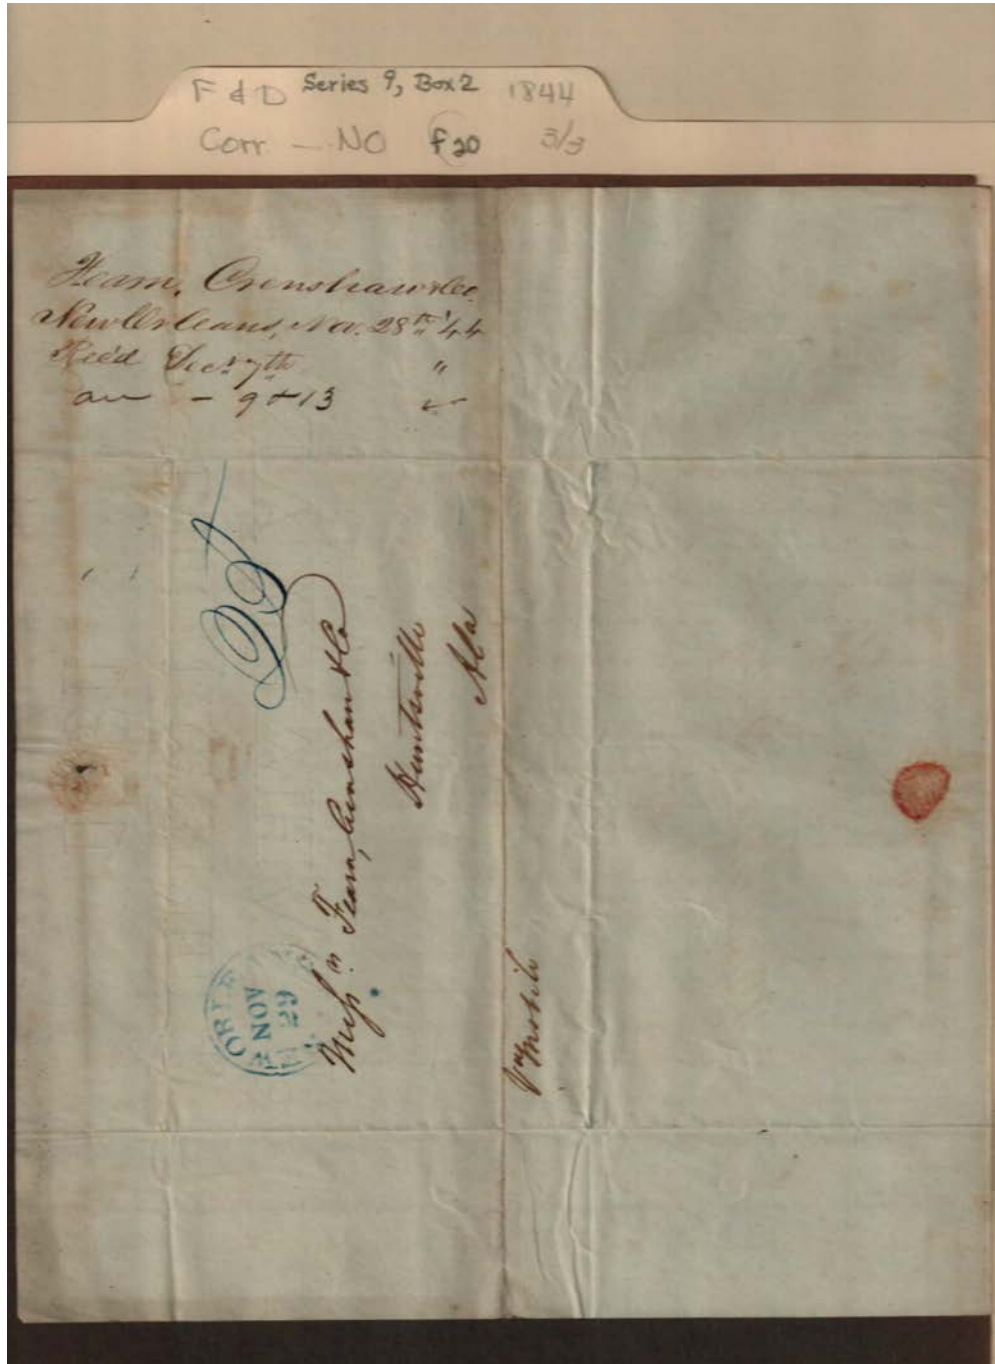 F & D Series 9, Box 2 1844
Corr. — NO f 20 3/3
Fearn, Crenshaw & Co.
New Orleans, Nov. 28th '44
Rec'd Decr 7th "
an — 9 & 13 "
NEW ORLEANS
NOV
29
Messrs Fearn, Crenshaw & Co
Huntsville
Ala
Via Mobile